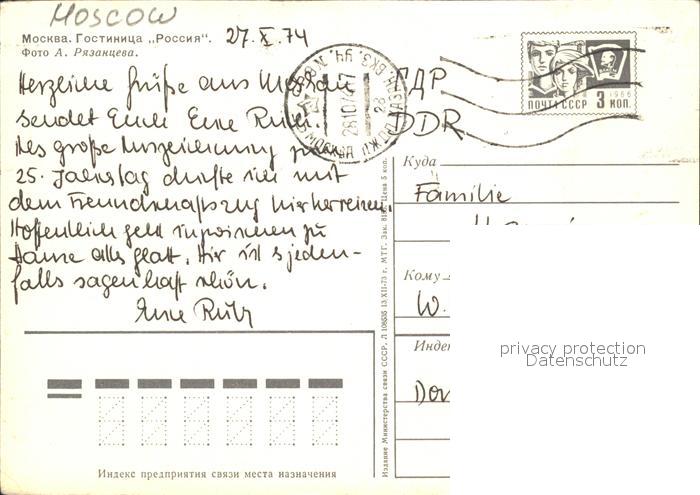 MOSCOW
Москва. Гостиница „Россия".
Фото А. Рязанцева.
27. X. 74
Herzliche Grüße aus Moskau
sendet Euch Eure Ruth.
Als große Auszeichnung zum
25. Jahrestag durfte ich mit
dem Freundschaftszug hierherreisen.
Hoffentlich geht inzwischen zu
Hause alles glatt. Hier ist's jeden-
falls sagenhaft schön.
Eure Ruth
ПОЧТА СССР 3 КОП.
1966
МОСКВА
ГДР
DDR
Куда
Familie
Кому
W.
Индекс
Dor
privacy protection
Datenschutz
Индекс предприятия связи места назначения
Издание Министерства связи СССР. Л 108535 13/XII-73 г. МТГ. Зак. Цена 5 коп.